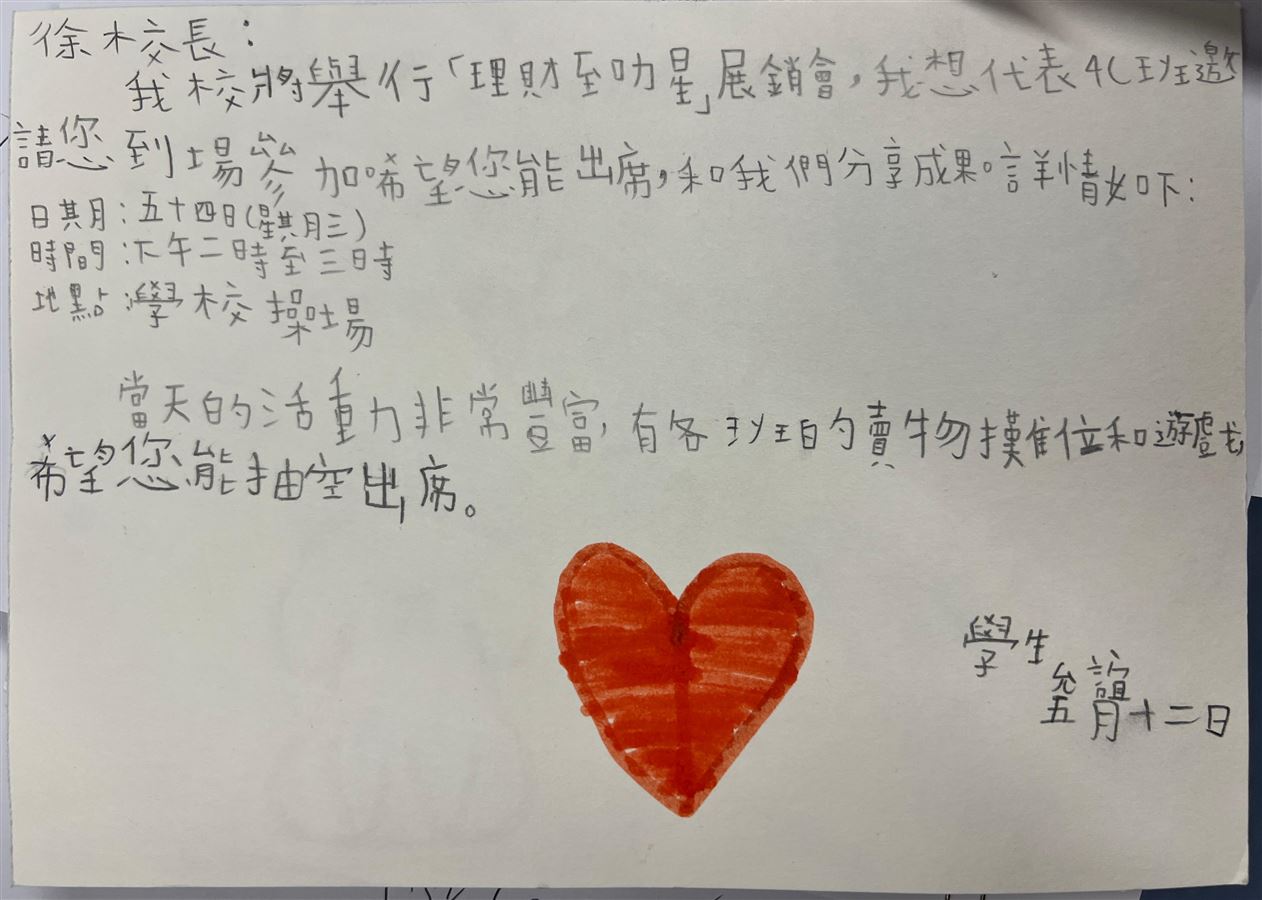 徐校長：
我校將舉行「理財至叻星」展銷會，我想代表4C班邀
請您到場參加唏望您能出席，和我們分享成果。詳情如下：
日期：五十四日(星期三)
時間：下午二時至三時
地點：學校操場
當天的活動非常豐富，有各班的賣物攤位和遊戲，
希望您能抽空出席。
學生
允誼
五月十二日